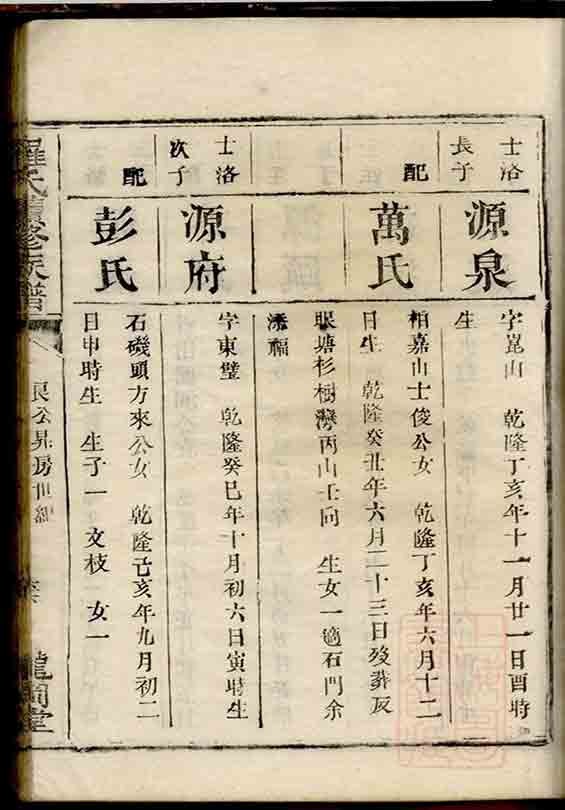 士洛
長子
源泉
字崑山 乾隆丁亥年十一月廿一日酉時
生
配
萬氏
栢嘉山士俊公女 乾隆丁亥年六月十二
日生 乾隆癸丑年六月二十三日歿葬灰
眼塘杉樹灣丙山壬向 生女一適石門余
添福
士洛
次子
源府
字東璧 乾隆癸巳年十月初六日寅時生
配
彭氏
石磯頭方來公女 乾隆己亥年九月初二
日申時生 生子一 文枝 女一
羅氏續修族譜
良公昇房世紀